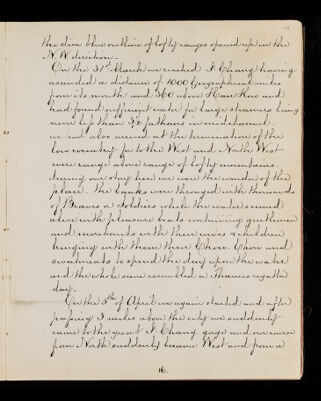 the dim blue outline of lofty ranges opened up in the
N.W. direction –
On the 31st March we reached I. Chang having
ascended a distance of 1000 Geographical miles
from its mouth and 360 above Han Kow and
had found sufficient water for large steamers being
never less than 3½ fathoms in mid channel.
we had also arrived at the termination of the
low country for to the West and North West
were range above range of lofty mountains.
during our stay here we were the wonder of the
place. the banks were thronged with thousands
of Braves or Soldiers while the water seemed
alive with pleasure boats containing gentlemen
and merchants with their wives & children
bringing with them their Chow. Chow and
sweetmeats to spend the day upon the water
and the whole scene resembled a Thames regatta
day.
On the 5th of April we again started and after
passing 3 miles above the city we suddenly
came to the great I. Chang gorge and our course
from North suddenly became West and from a
16.